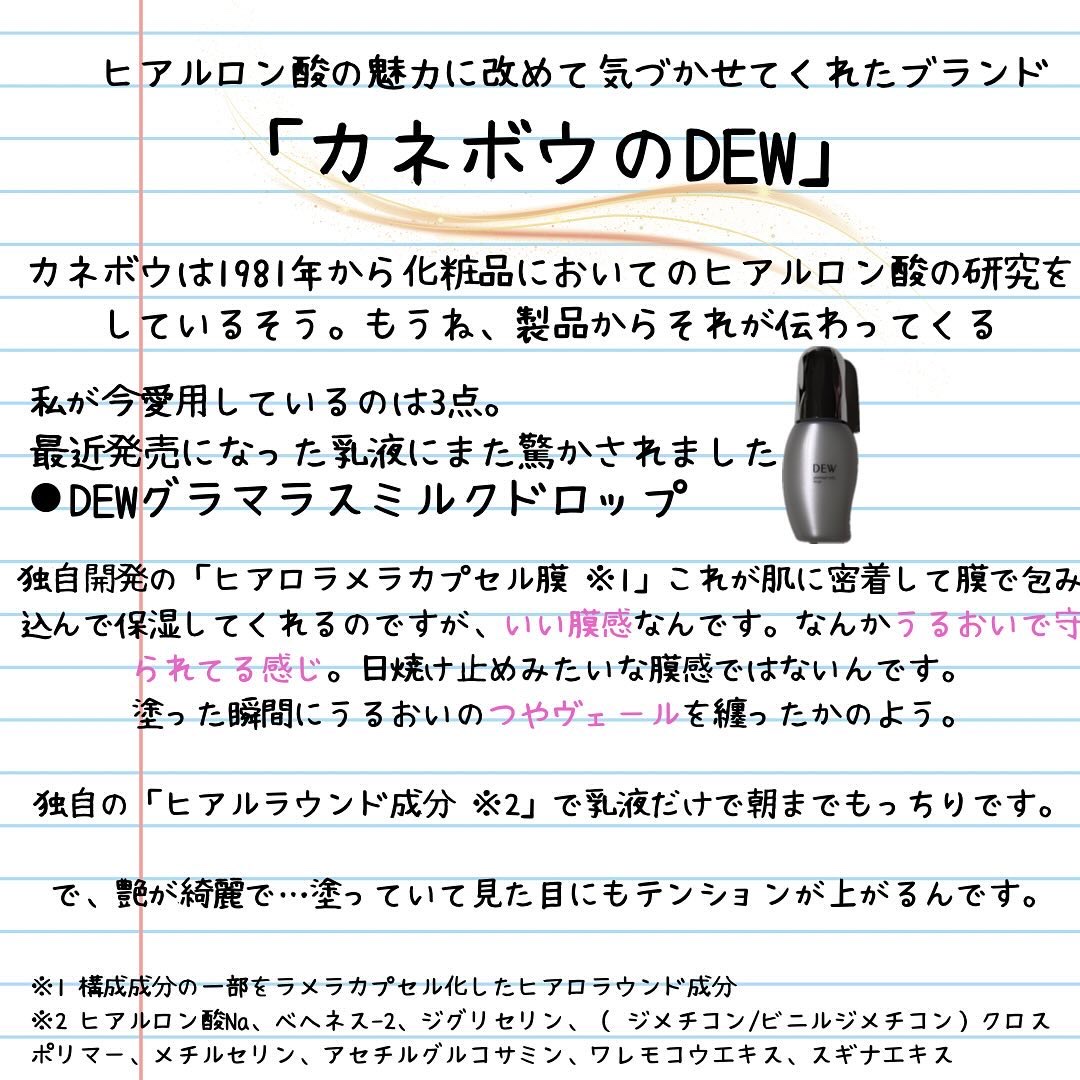 ヒアルロン酸の魅力に改めて気づかせてくれたブランド
「カネボウのDEW」
カネボウは1981年から化粧品においてのヒアルロン酸の研究を
しているそう。もうね、製品からそれが伝わってくる
私が今愛用しているのは3点。
最近発売になった乳液にまた驚かされました
●DEWグラマラスミルクドロップ
DEW
独自開発の「ヒアロラメラカプセル膜 ※1」これが肌に密着して膜で包み
込んで保湿してくれるのですが、いい膜感なんです。なんかうるおいで守
られてる感じ。日焼け止めみたいな膜感ではないんです。
塗った瞬間にうるおいのつやヴェールを纏ったかのよう。
独自の「ヒアルラウンド成分 ※2」で乳液だけで朝までもっちりです。
で、艶が綺麗で…塗っていて見た目にもテンションが上がるんです。
※1 構成成分の一部をラメラカプセル化したヒアロラウンド成分
※2 ヒアルロン酸Na、ベヘネス-2、ジグリセリン、( ジメチコン/ビニルジメチコン) クロス
ポリマー、メチルセリン、アセチルグルコサミン、ワレモコウエキス、スギナエキス